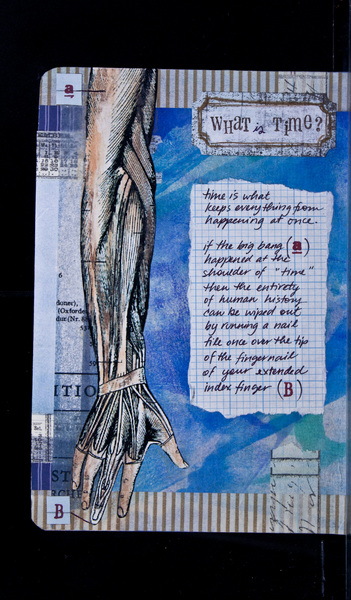 a
What is Time?
time is what
keeps everything from
happening at once.
if the big bang (a)
happened at the
shoulder of "time"
then the entirety
of human history
can be wiped out
by running a nail
file once over the tip
of the fingernail
of your extended
index finger (B)
6
(Oxford
ITIO
ST
B